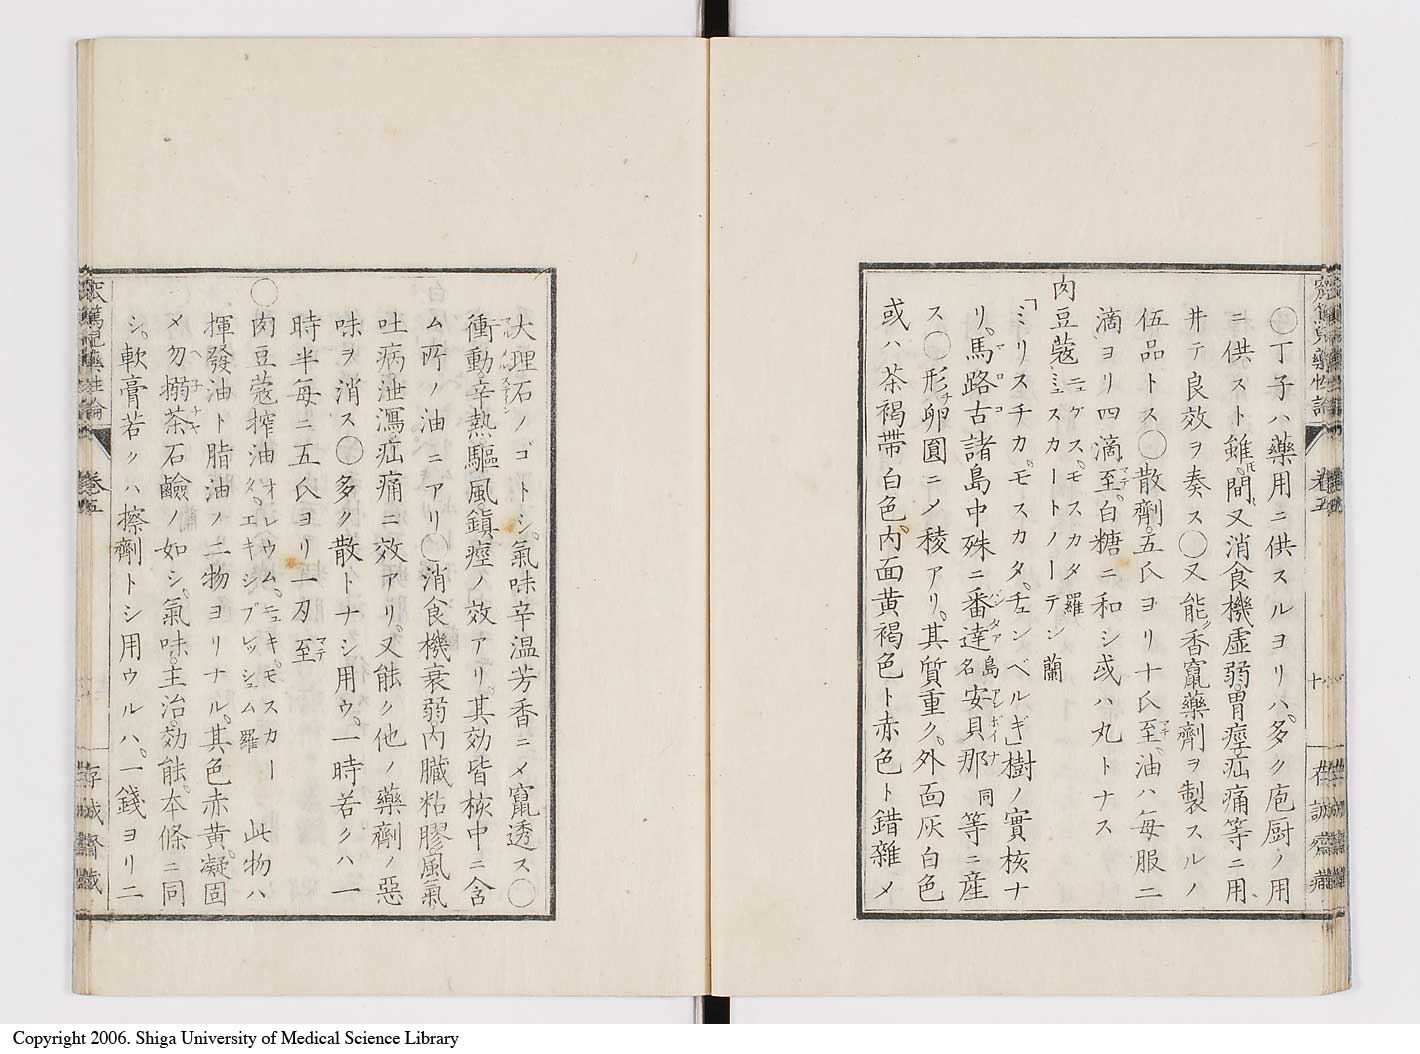 〇丁子ハ藥用ニ供スルヨリハ多ク庖厨ノ用
ニ供スト雖𪜈間又消食機虚弱胃痙疝痛等ニ用
井テ良效ヲ奏ス〇又能ク香竄藥劑ヲ製スルノ
伍品トス〇散劑五氏ヨリ十氏至マテ油ハ毎服二
滴ヨリ四滴至マテ白糖ニ和シ或ハ丸トナス
肉豆蔻 ニュクス。モスカタ 羅 ミュスカートノーテン 蘭
「ミリスチカ。モスカタ。チュンベルギ」樹ノ實核ナ
リ。馬路古マロコ諸島中殊ニ番達バンダア島名安貝那アンボイナ同等ニ産
ス〇形チ卵圓ニメ稜アリ。其質重ク。外面灰白色
或ハ茶褐帶白色。内面黄褐色ト赤色ト錯雜メ
大理石ノゴトシ。氣味辛温芳香ニメ竄透ス〇
衝動。辛熱。驅風。鎭痙ノ效アリ。其効皆核中ニ含
ム所ノ油ニアリ〇消食機衰弱。内臟粘膠。風氣
吐病泄瀉疝痛ニ效アリ。又能ク他ノ藥劑ノ惡
味ヲ消ス〇多ク散トナシ用ウ。一時若クハ一
時半毎ニ五氏ヨリ一刃至マテ
〇肉豆蔻搾油 オレウム。ニュキ。モスカータ。エキジブレッシュム 羅 此物ハ
揮發油ト脂油ノ二物ヨリナル。其色赤黄。凝固
メ勿搦茶ヘネチヤ石鹼ノ如シ。氣味。主治。効能。本條ニ同
シ。軟膏若クハ擦劑トシ用ウルハ。一錢ヨリ二
卷五
十
存誠齋藏
卷五
存誠齋藏
Copyright 2006. Shiga University of Medical Science Library